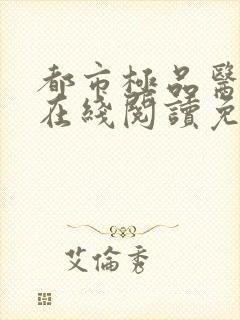 都市極品醫
在綫閱讀免
艾倫秀